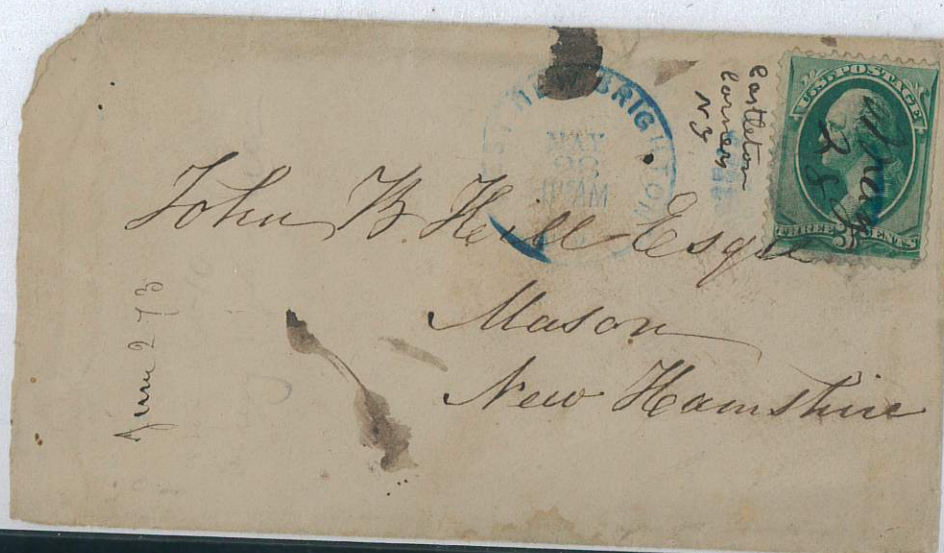 NEW BRIGHTON
MAY
28
AM
Castleton
Corners
NY
U.S. POSTAGE
May
28
THREE CENTS
John B Hill Esqr
Mason
New Hamshire
June 2 73